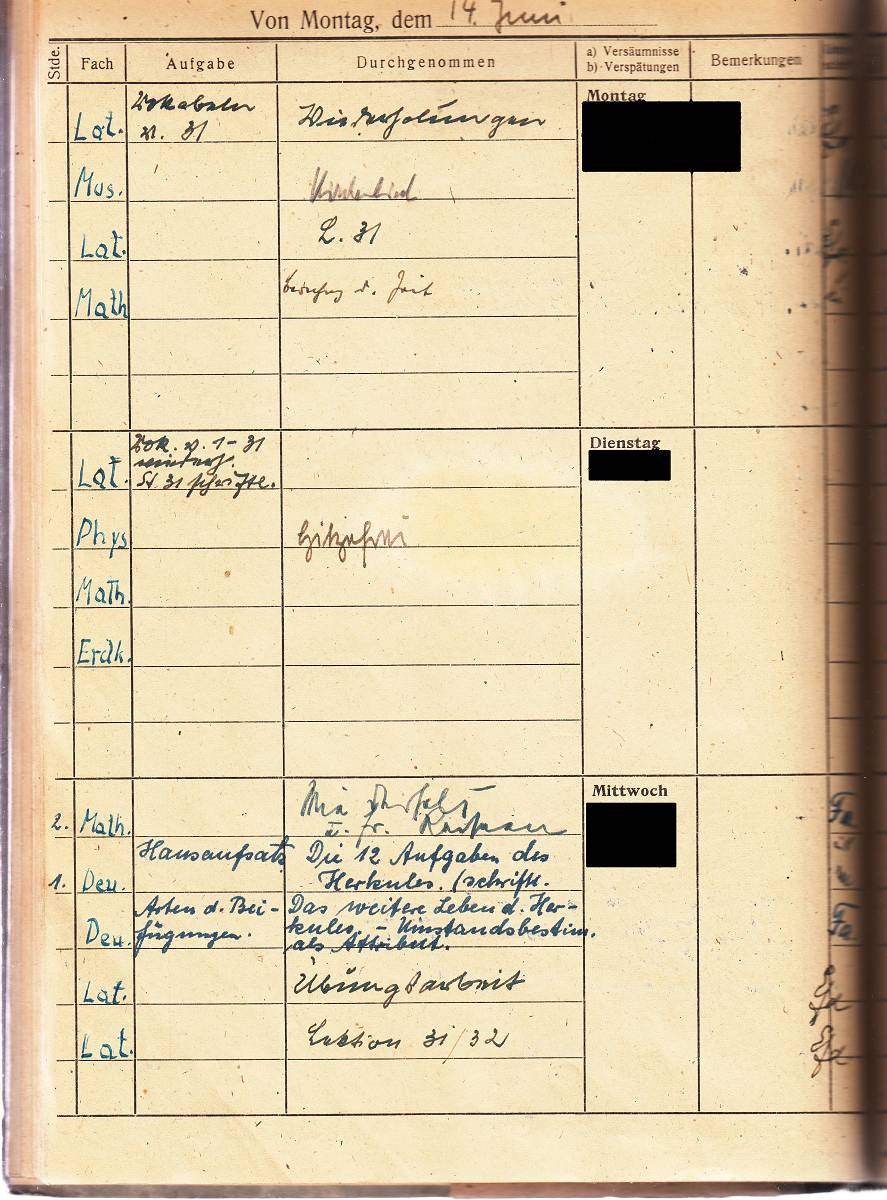 Von Montag, dem 14. Juni
Stde. Fach Aufgabe Durchgenommen a) Versäumnisse b) Verspätungen Bemerkungen
Montag
Lat. Vokabeln v. 31 Wiederholungen
Mus. Kinderlied
Lat. L. 31
Math d. Zeit
Dienstag
Lat. Vok. v. 1-31
wiederh.
St. 31 schriftl.
Phys Hitzefrei
Math.
Erdk.
Mittwoch
2. Math.
1. Deu. Hausaufsatz Die 12 Aufgaben des
Herkules. (schriftl.
Deu. Arten d. Bei-
fügungen. Das weitere Leben d. Her-
kules. - Umstandsbestim.
als Attribut.
Lat. Übungsarbeit
Lat. Lektion 31/32